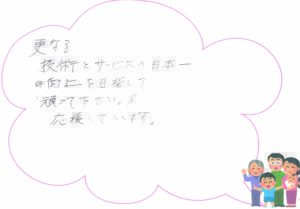 更なる
技術とサービスの日本一
向上を目指して
頑って下さい。
応援しています。